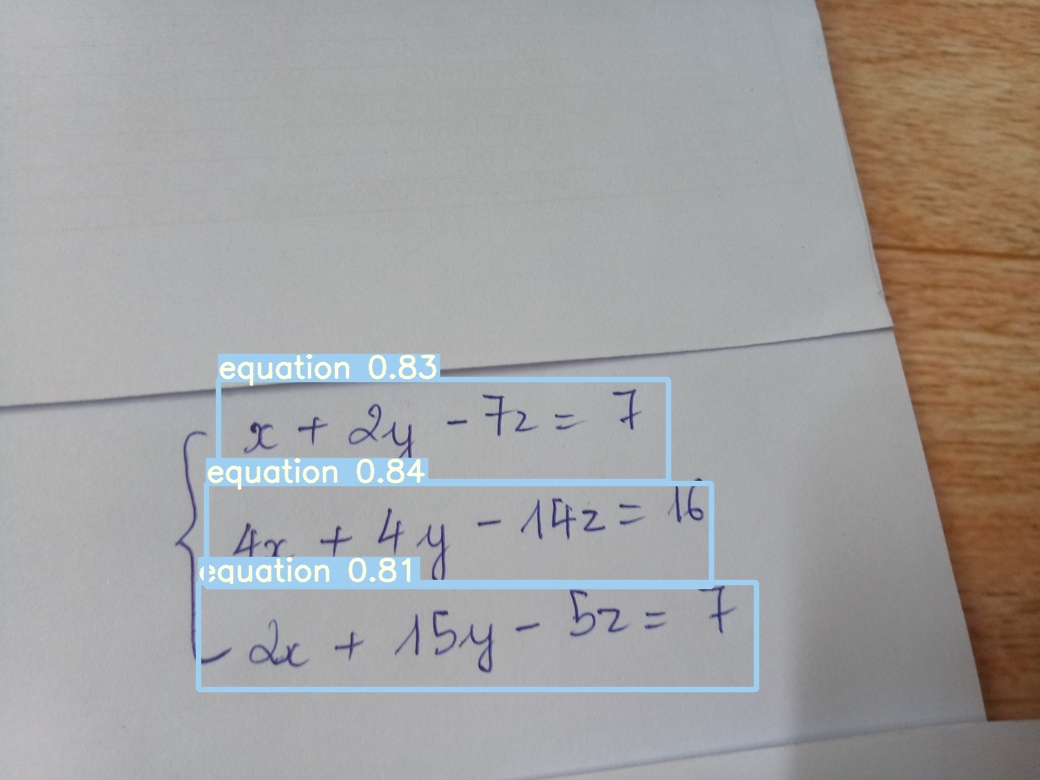 equation 0.83
x + 2y - 7z = 7
equation 0.84
4x + 4y - 14z = 16
equation 0.81
2x + 15y - 5z = 7